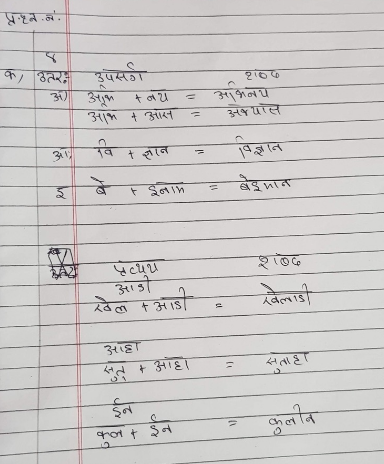 प्रश्न नं.
४
क) उतर: उपसर्ग शब्द
अ) अभि + नय = अभिनय
अभि + आस = अभ्यास
आ) वि + ज्ञान = विज्ञान
इ बे + इनाम = बेइमान
प्रत्यय शब्द
आडी
खेल + आडी = खेलाडी
आहा
सुत् + आहा = सुताहा
ईन
कुल + ईन = कुलीन